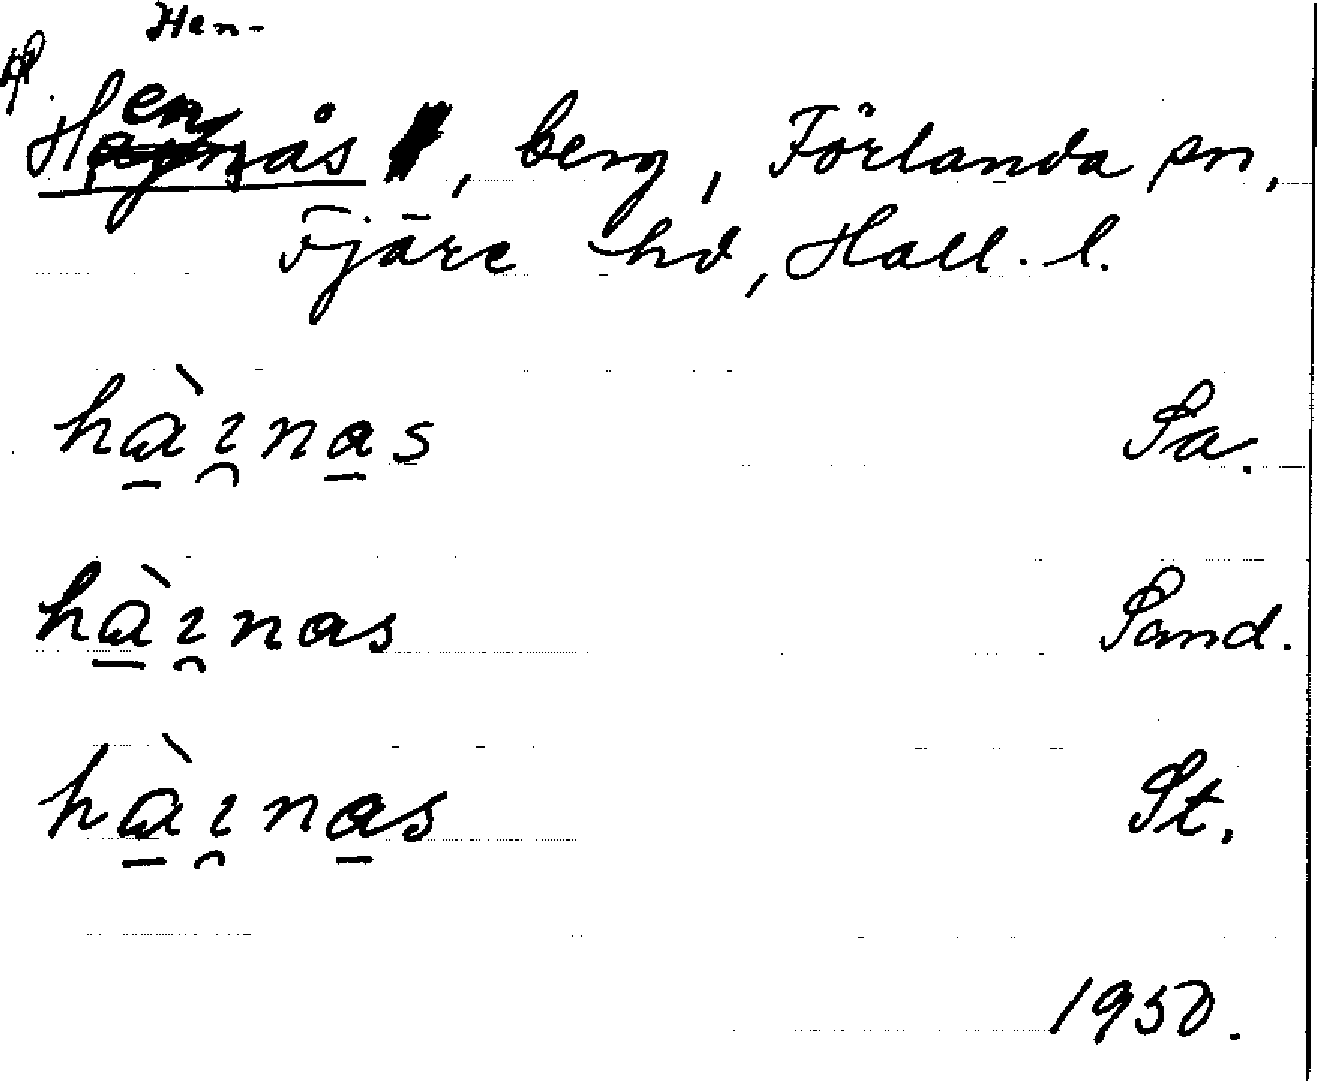 Hen-
Henås, berg, Förlanda sn,
Fjäre hd, Hall. l.
hàɩ̯nas Sa.
hàɩ̯nas Sand.
hàɩ̯nas St.
1950.